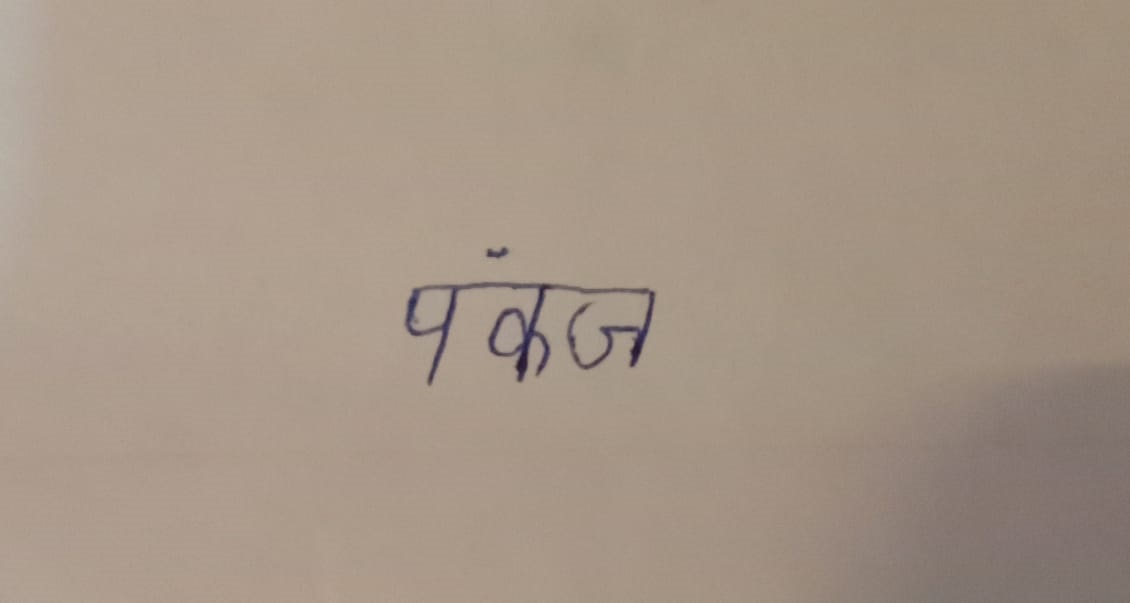 पंकज